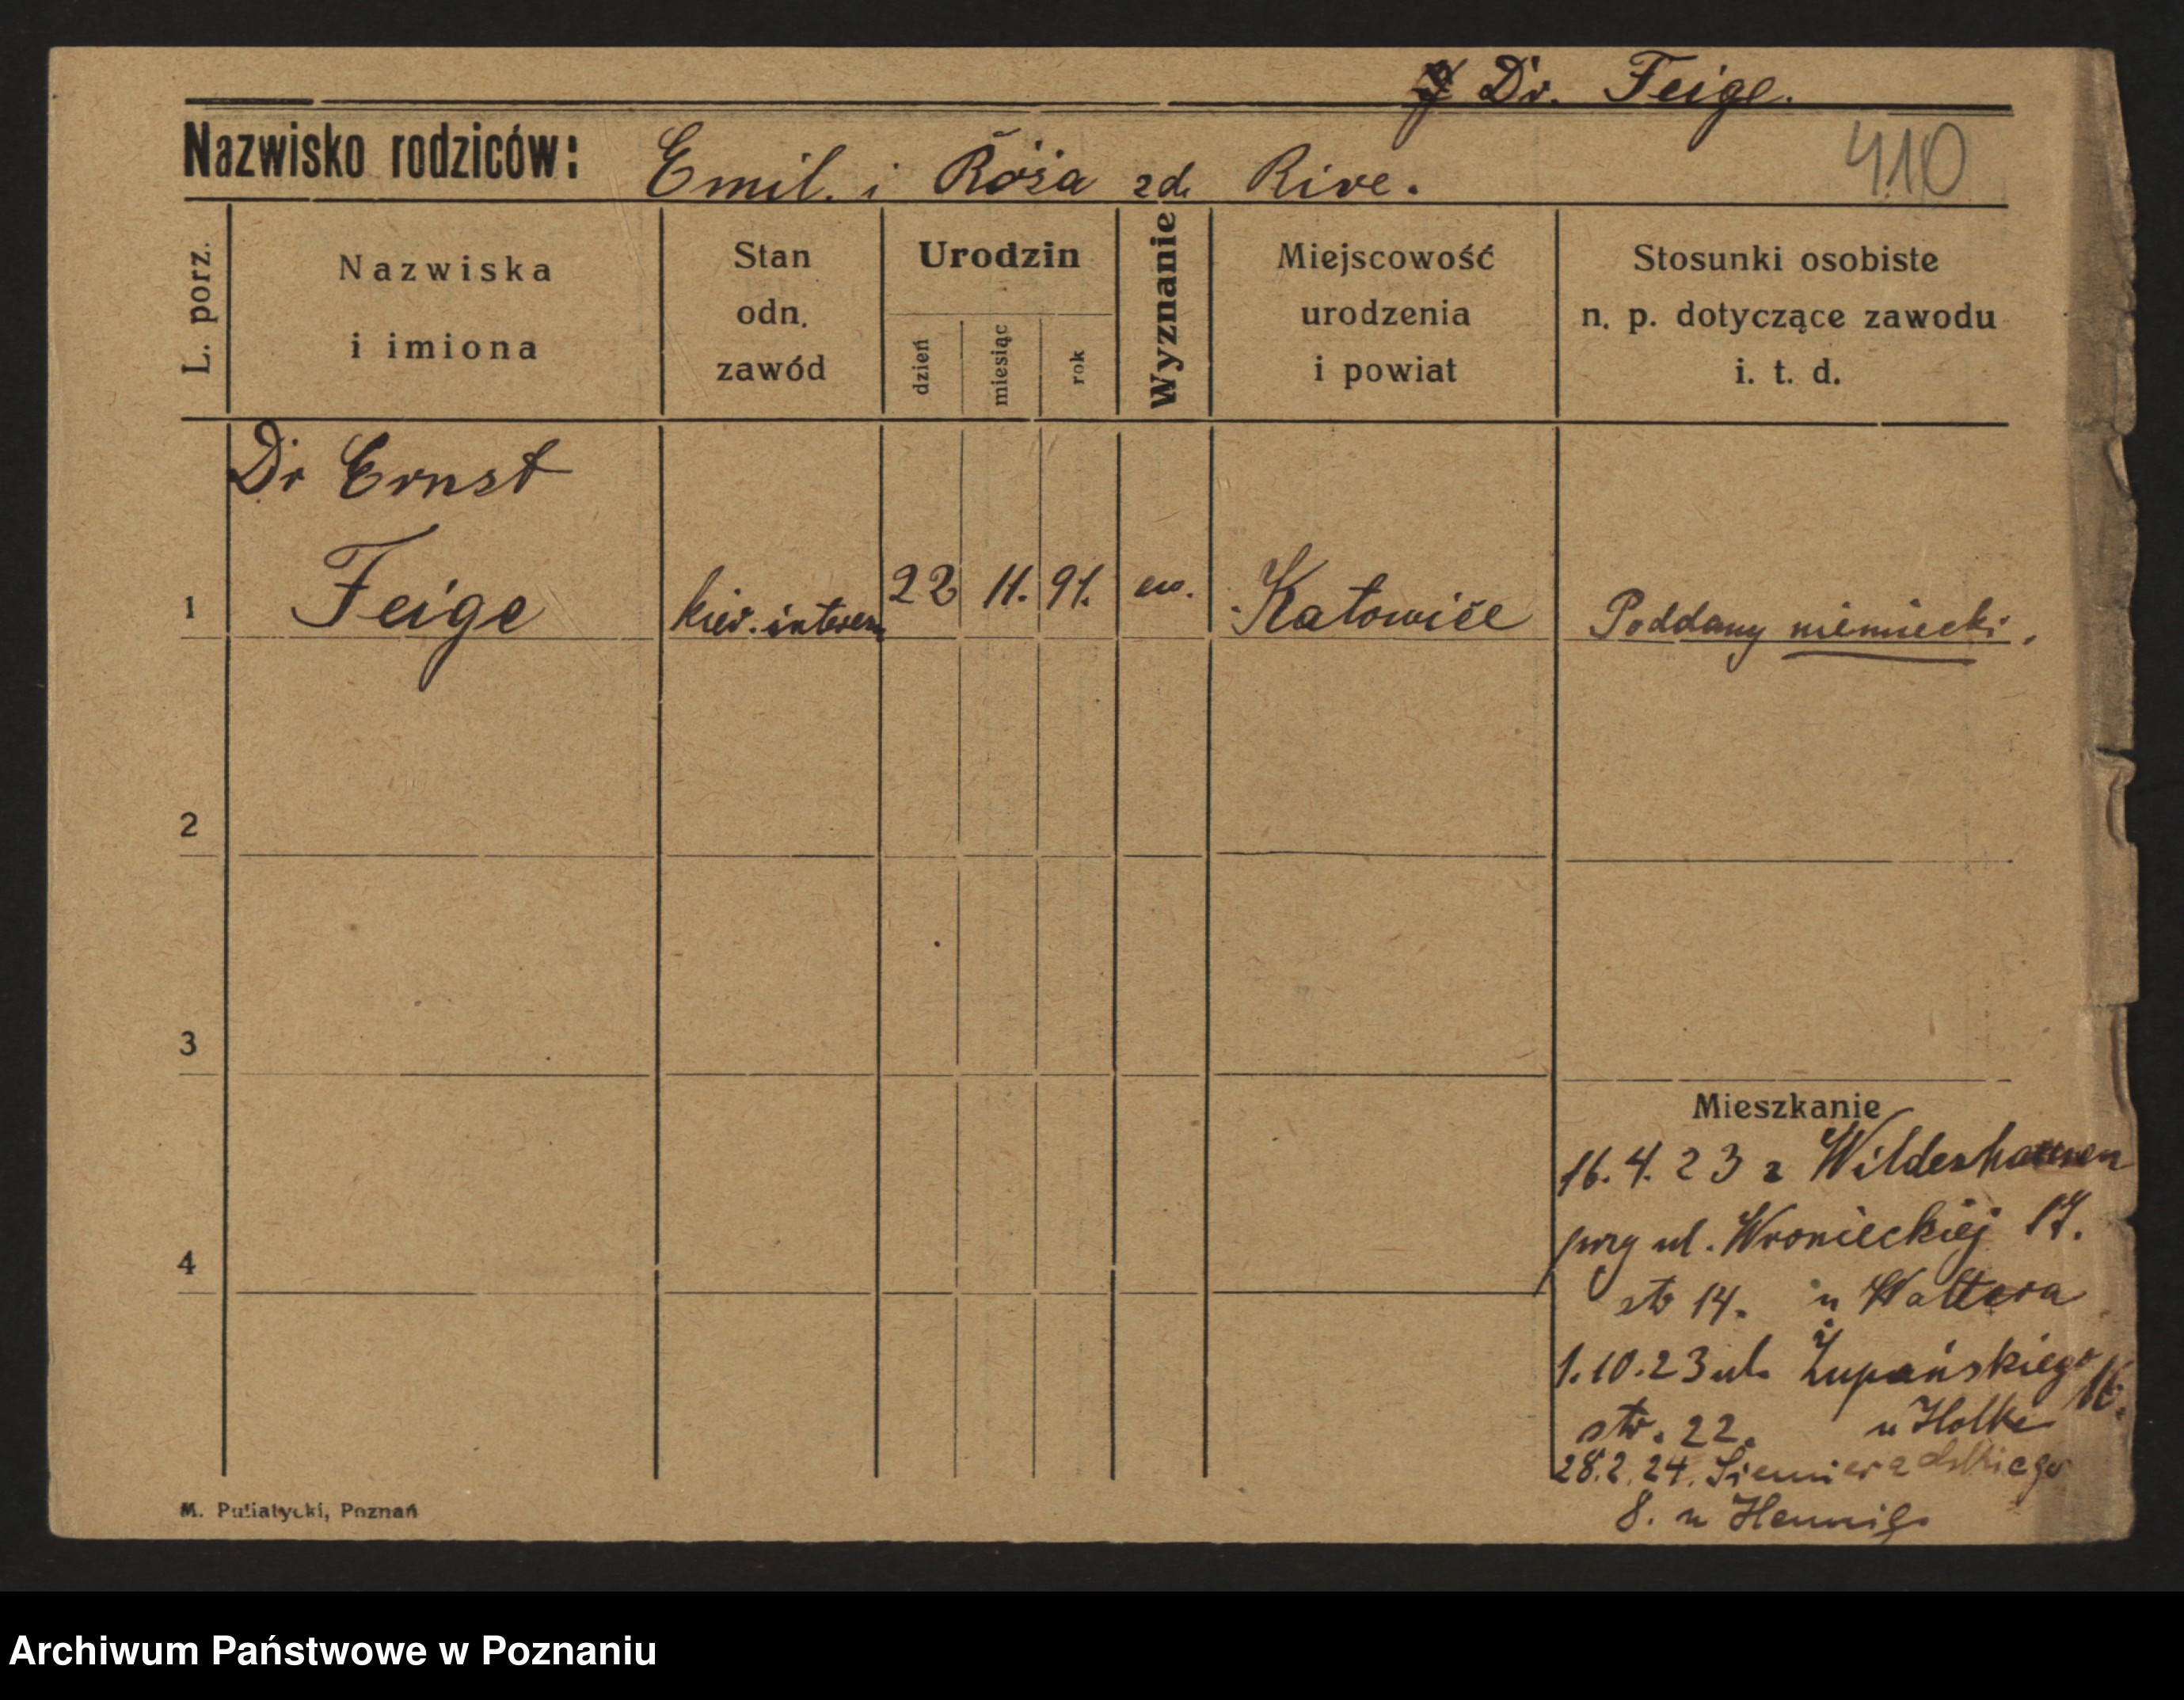 Dr. Feige.
Nazwisko rodziców: Emil. i Róża zd. Rive.
410
L. porz.
Nazwiska
i imiona
Stan
odn.
zawód
Urodzin
dzień
miesiąc
rok
Wyznanie
Miejscowość
urodzenia
i powiat
Stosunki osobiste
n. p. dotyczące zawodu
i. t. d.
Dr Ernst
1 Feige kier. 22 11. 91. ew. Katowice Poddany niemiecki.
2
3
Mieszkanie
16. 4. 23 z Wildeshausen
przy ul. Wronieckiej 17.
4
str 14. u Waltera
1. 10. 23 ul. Żupańskiego 16.
str. 22. u Holke
28. 2. 24. Siemieradzkiego
8. u Hennig.
M. Putiatycki, Poznań
Archiwum Państwowe w Poznaniu